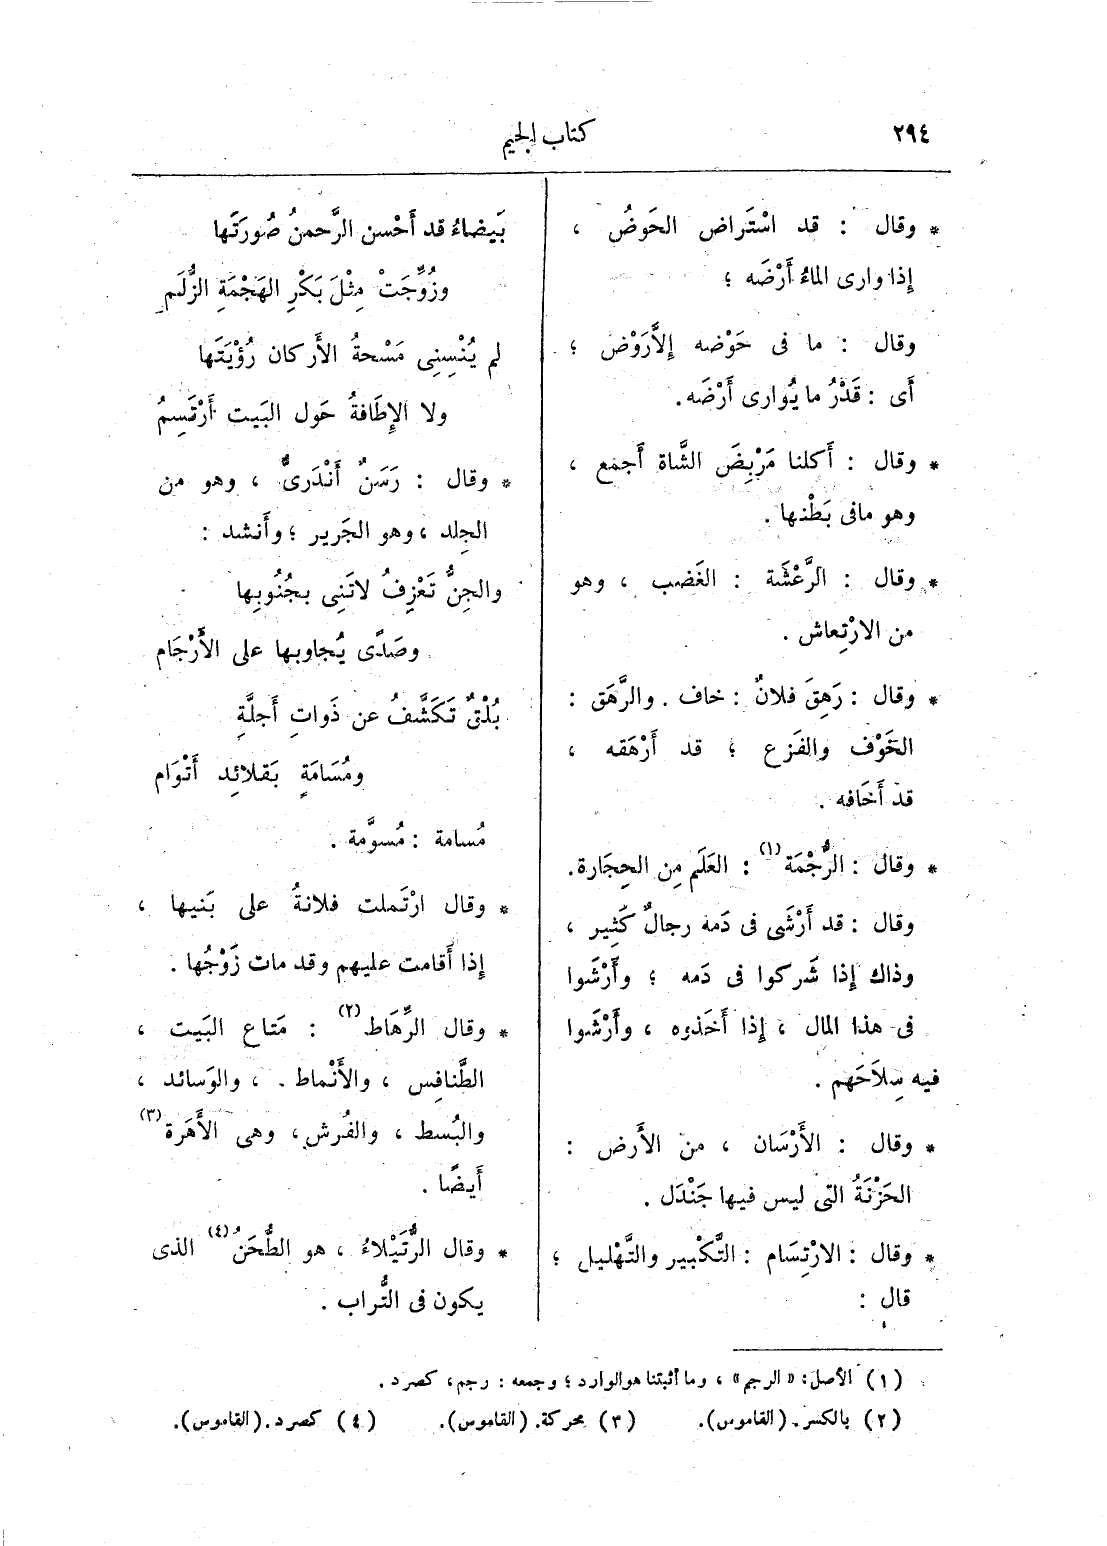 ٢٩٤
كتاب الجيم
* وقال : قد اسْتَراض الحَوضُ ،
إذا وارى الماءُ أَرْضَه ؛
وقال : ما فى حَوْضه إلاَّرَوْض ؛
أَى : قَدْرُ ما يُوارى أَرْضَه.
* وقال : أَكلنا مَرْبِضَ الشَّاة أَجمع ،
وهو مافى بَطْنها .
* وقال : الرَّعْشَة : الغَضب ، وهو
من الارْتِعاش .
* وقال : رَهِقَ فلانٌ : خاف . والرَّهَق :
الخَوْف والفَزع ؛ قد أَرْهَقه ،
قد أَخَافه .
* وقال : الرُّجْمَة (١) : العَلَم مِن الحِجَارة.
وقال : قد أَرْشَى فى دَمه رجالٌ كَثِير ،
وذاك إذا شَركوا فى دَمه ؛ وأَرْشَوا
فى هذا المال ، إذا أَخَذوه ، وأَرْشَوا
فيه سِلاَحَهم .
* وقال : الأَرْسَان ، من الأَرض :
الحَزْنَةُ التى ليس فيها جَنْدَل .
* وقال : الارْتِسَام : التَّكْبير والتَّهْليل ؛
قال :
بَيضاءُ قد أَحْسن الرَّحمنُ صُورَتَها
وزُوِّجَتْ مِثْلَ بَكْرِ الهَجْمَةِ الزُّلَم
لم يُنْسِنِى مَسْحةُ الأَركان رُؤْيَتَها
ولا الإطَافةُ حَول البَيت أَرْتَسِمُ
* وقال : رَسَنٌ أَنْدَرىٌّ ، وهو من
الجِلد ، وهو الجَرير ؛ وأَنشد :
والجِنُّ تَعْزِفُ لاتَنِى بجُنُوبِها
وصَدًى يُجاوبها على الأَرْجَام
بُلْقٌ تَكَشَّفُ عن ذَواتِ أَجلَّةٍ
ومُسَامَةٍ بَقلائِد أَتْوَام
مُسامة : مُسوَّمة .
* وقال ارْتَملت فلانةُ على بَنيها ،
إذا أَقامت عليهم وقد مات زَوْجُها .
* وقال الرِّهَاط (٢) : مَتاع البَيت ،
الطَّنافِس ، والأَنْماط . ، والوَسائد ،
والبُسط ، والفُرش ، وهى الأَهَرة (٣)
أَيضًا .
* وقال الرُّتَيْلاءُ ، هو الطُّحَنُ (٤) الذى
يكون فى التُّراب .
(١) الأصل: « الرجم » ، وما أثبتنا هو الوارد ؛ وجمعه : رجم، كصرد .
(٢) بالكسر. (القاموس). (٣) محركة. (القاموس). (٤) كصرد. (القاموس).